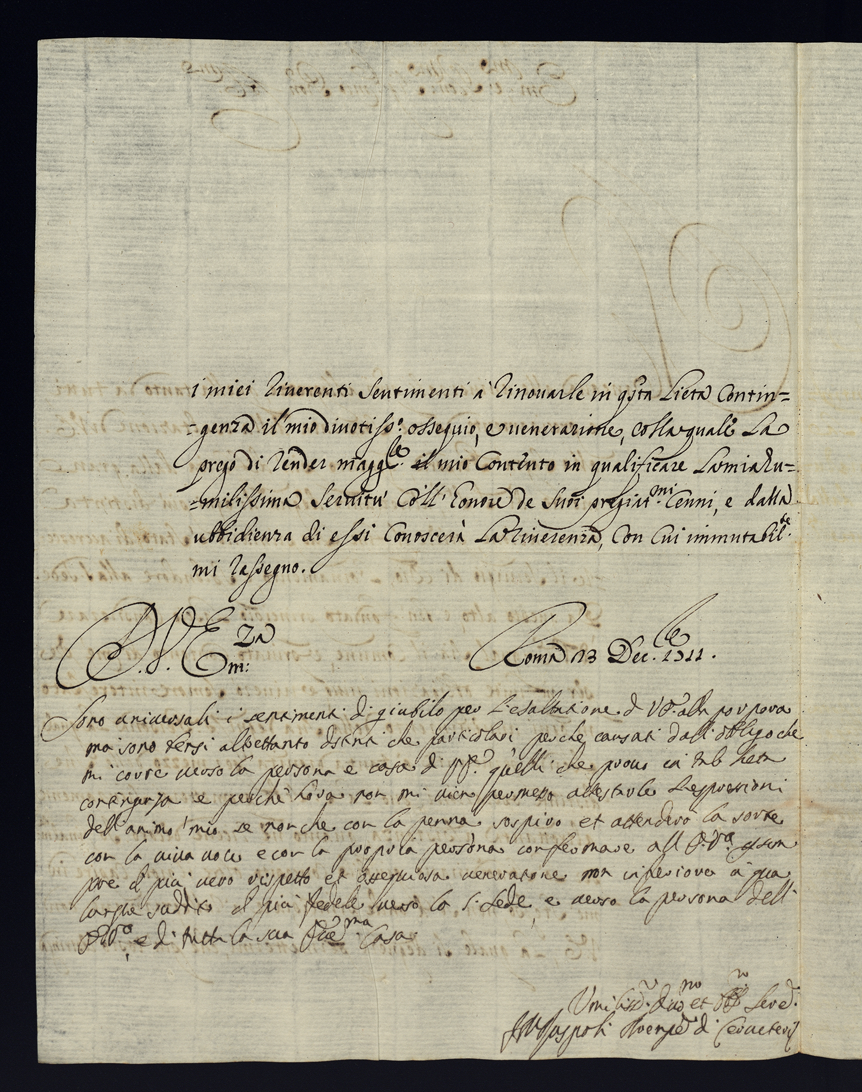 i miei riverenti sentimenti a rinovarle in q.sta lieta contin=
=genza il mio divotiss.o ossequio, e venerazione, colla quale La
prego di render magg.le il mio contento in qualificare La mia Hu=
=milissima servitù coll'honore de suoi pregiat.mi cenni, e dalla
ubbidienza di essi conoscerà La riverenza, con cui immutabil.te
mi rassegno.
D. V. Em:za Roma 13 Dec.le 1711.
Sono universali i sentimenti di giubilo per l'esaltatione di V.E. alla porpora
ma sono forsi altrettanto distinti che particolari perche causati dall'obbligo che
mi corre verso la persona e casa di V.E. quelli che provo in tale lieta
contingenza e perche hora non mi vien permesso attestarle l'espressioni
dell'animo mio se non che con la penna sospiro et attenderò la sorte
con la viva voce e con la propria persona confermare all' E.V.a sem
pre il più vero rispetto et ossequiosa veneratione non inferiore a qua
lunque suddito il più fedele verso la S. Sede, e verso la persona dell'
E.V.a e di tutta la sua Ecc.ma Casa
Umiliss.o Dev.mo et Obb.o Serv.e
F M Ruspoli Prencipe di Cerveteri